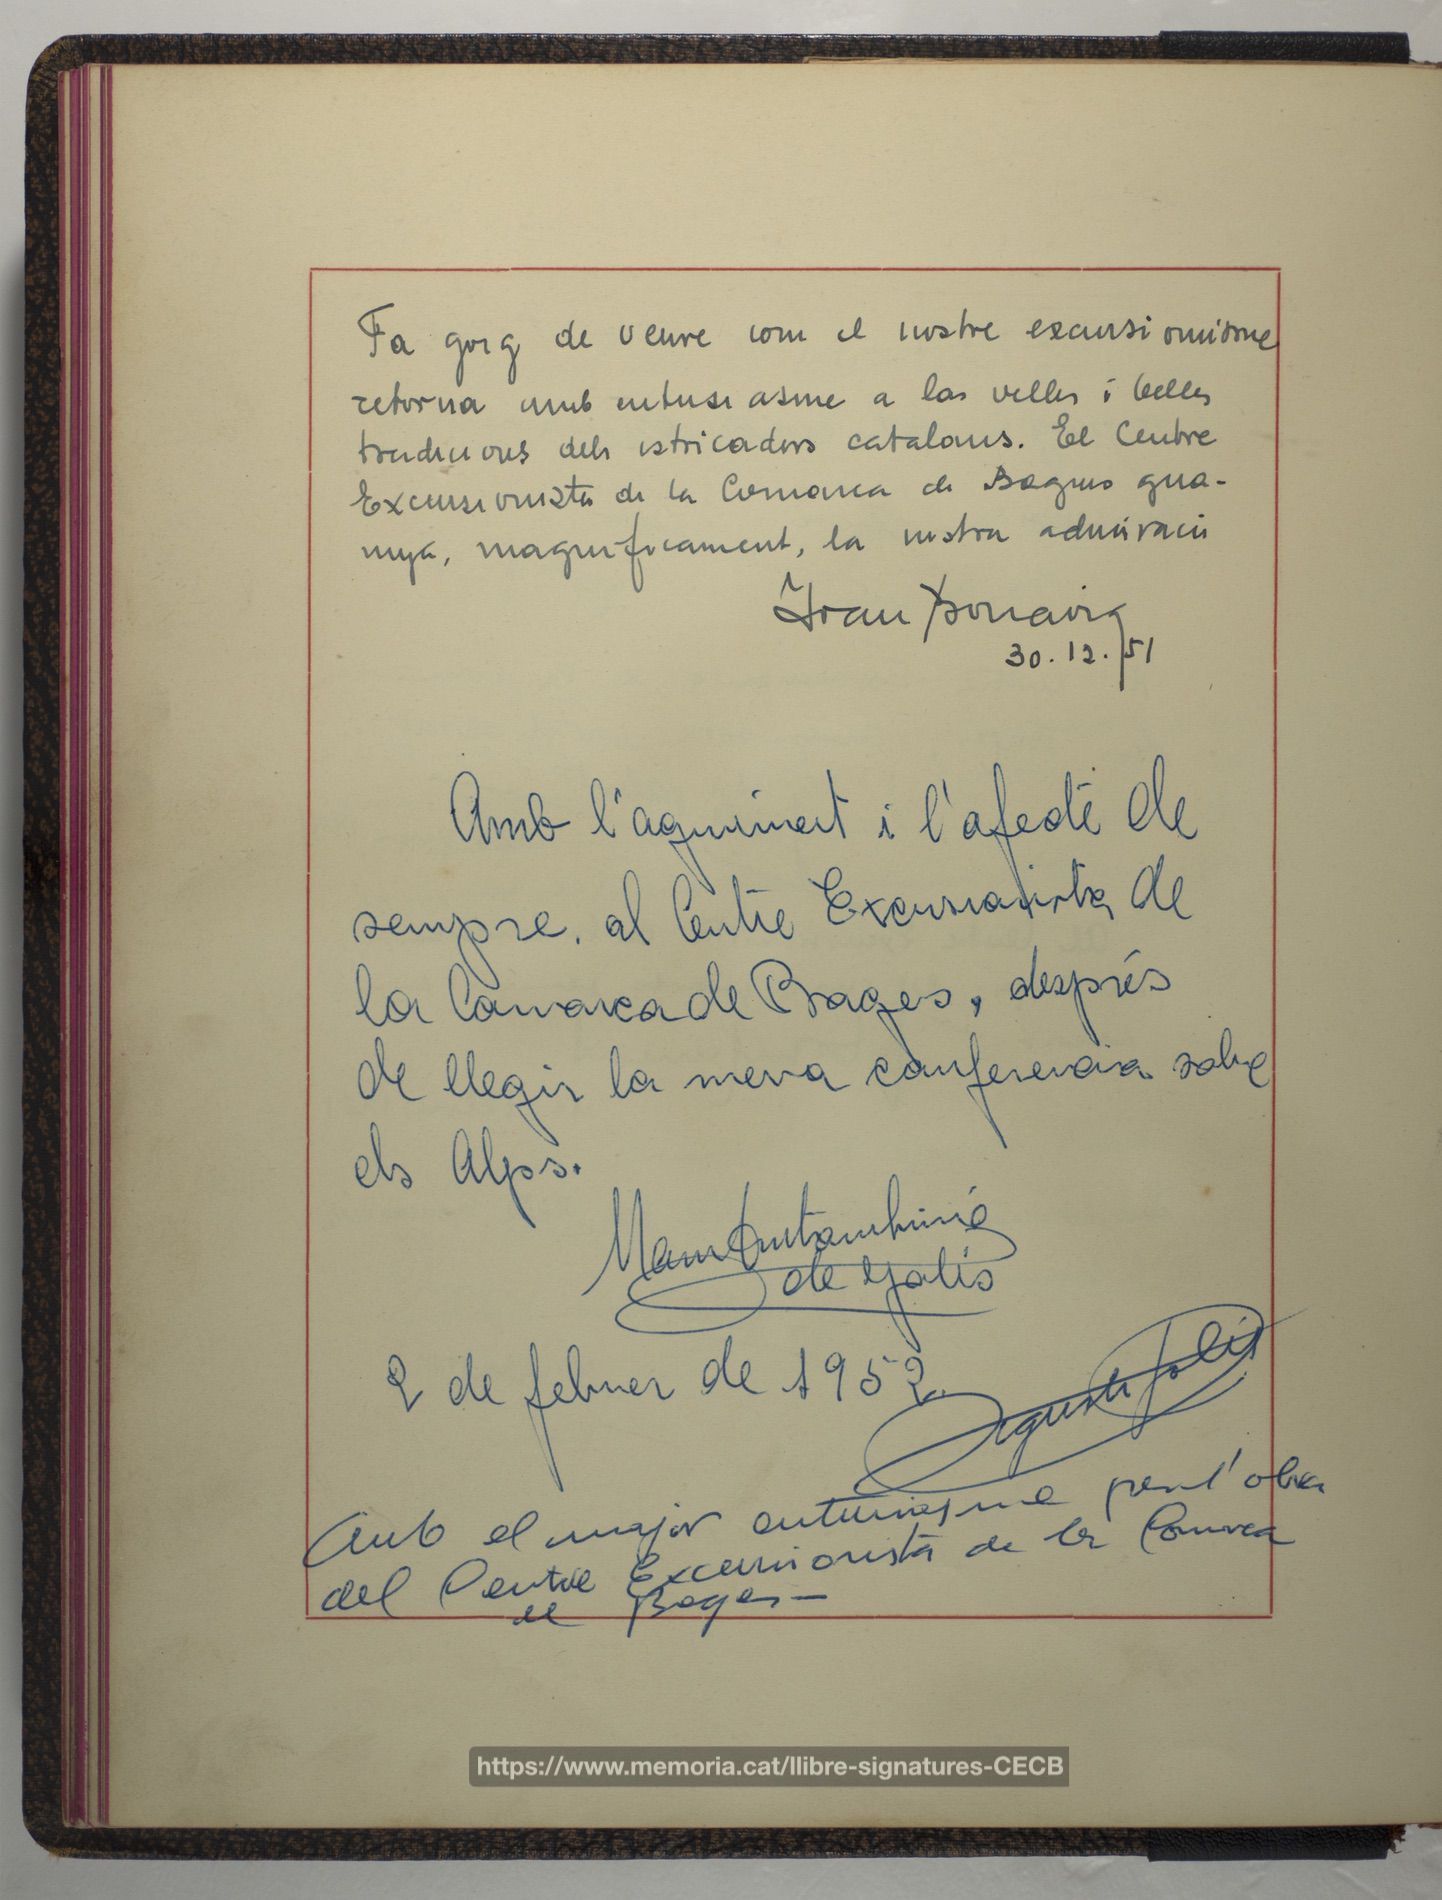 Fa goig de veure com el nostre excursionisme
retorna amb entusiasme a les velles i belles
tradicions dels catalans. El Centre
Excursionista de la Comarca de Bages gua-
nya, magníficament, la nostra admiració
30.12.51
Amb l'agraiment i l'afecte de
sempre, al Centre Excursionista de
la Comarca de Bages, després
de llegir la meva conferencia sobre
els Alps.
de Galís
2 de febrer de 1952.
Agustí
Amb el major entusiasme per l'obra
del Centre Excursionista de la Comarca
de Bages—
https://www.memoria.cat/llibre-signatures-CECB